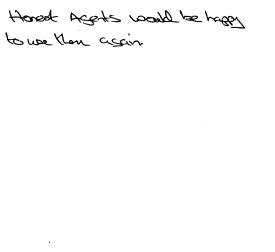 Honest Agents would be happy
to use them again